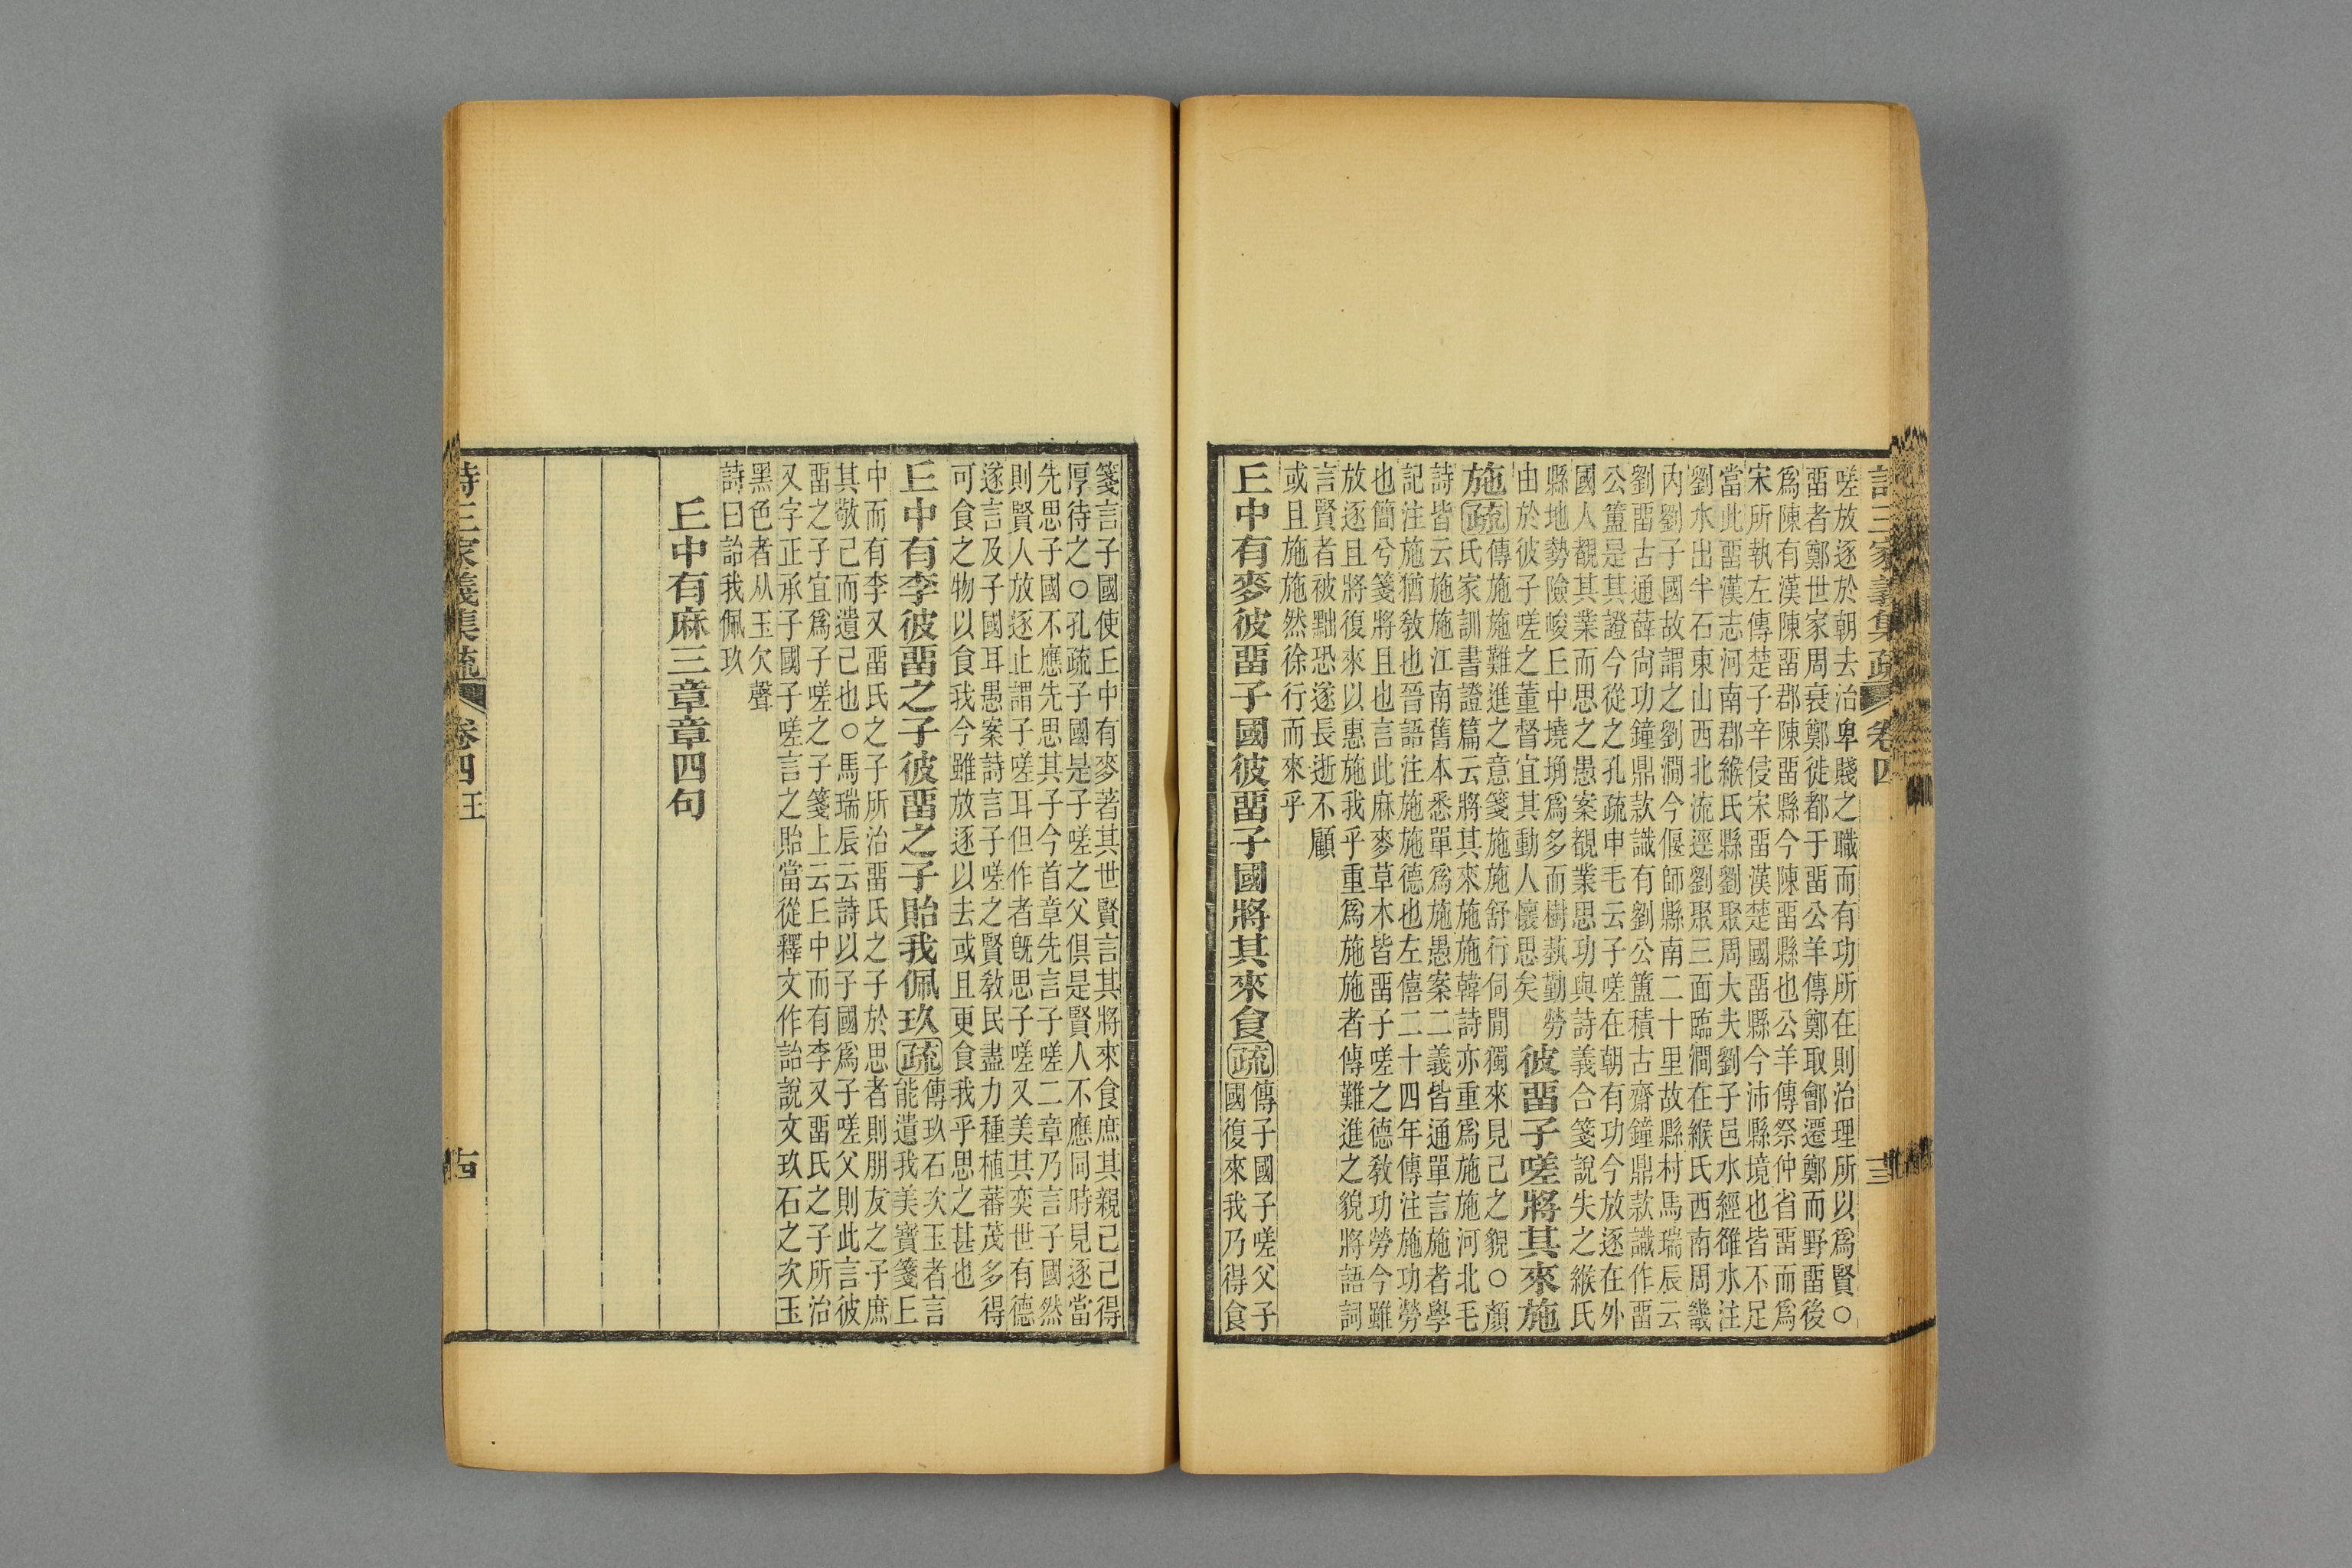 詩三家義集疏 卷四 十三
嗟放逐於朝去治卑賤之職而有功所在則治理所以爲賢○
畱者鄭世家周衰鄭徙都于畱公羊傳鄭取鄶遷鄭而野畱後
爲陳有漢陳畱郡陳畱縣今陳畱縣也公羊傳祭仲省畱而爲
宋所執左傳楚子辛侵宋畱漢楚國畱縣今沛縣境也皆不足
當此畱漢志河南郡緱氏縣劉聚周大夫劉子邑水經雒水注
劉水出半石東山西北流逕劉聚三面臨澗在緱氏西南周畿
內劉子國故謂之劉澗今偃師縣南二十里故縣村馬瑞辰云
劉畱古通薛尚功鐘鼎款識有劉公簠積古齋鐘鼎款識作畱
公簠是其證今從之孔疏申毛云子嗟在朝有功今放逐在外
國人覩其業而思之愚案覩業思功與詩義合箋說失之緱氏
縣地勢險峻丘中墝埆爲多而樹蓺勤勞
由於彼子嗟之董督宜其動人懷思矣
彼畱子嗟將其來施
施疏傳施施難進之意箋施施舒行伺閒獨來見己之貌○顏
氏家訓書證篇云將其來施施韓詩亦重爲施施河北毛
詩皆云施施江南舊本悉單爲施愚案二義皆通單言施者學
記注施猶敎也晉語注施施德也左僖二十四年傳注施功勞
也簡兮箋將且也言此麻麥草木皆畱子嗟之德敎功勞今雖
放逐且將復來以惠施我乎重爲施施者傳難進之貌將語詞
言賢者被黜恐遂長逝不顧
或且施施然徐行而來乎
丘中有麥彼畱子國彼畱子國將其來食疏傳子國子嗟父子
國復來我乃得食
箋言子國使丘中有麥著其世賢言其將來食庶其親己己得
厚待之○孔疏子國是子嗟之父俱是賢人不應同時見逐當
先思子國不應先思其子今首章先言子嗟二章乃言子國然
則賢人放逐止謂子嗟耳但作者旣思子嗟又美其奕世有德
遂言及子國耳愚案詩言子嗟之賢敎民盡力種植蕃茂多得
可食之物以食我今雖放逐以去或且更食我乎思之甚也
丘中有李彼畱之子彼畱之子貽我佩玖疏傳玖石次玉者言
能遺我美寶箋丘
中而有李又畱氏之子所治畱氏之子於思者則朋友之子庶
其敬己而遺己也○馬瑞辰云詩以子國爲子嗟父則此言彼
畱之子宜爲子嗟之子箋上云丘中而有李又畱氏之子所治
又字正承子國子嗟言之貽當從釋文作詒說文玖石之次玉
黑色者从玉欠聲
詩曰詒我佩玖
丘中有麻三章章四句
詩三家義集疏 卷四 王 十四